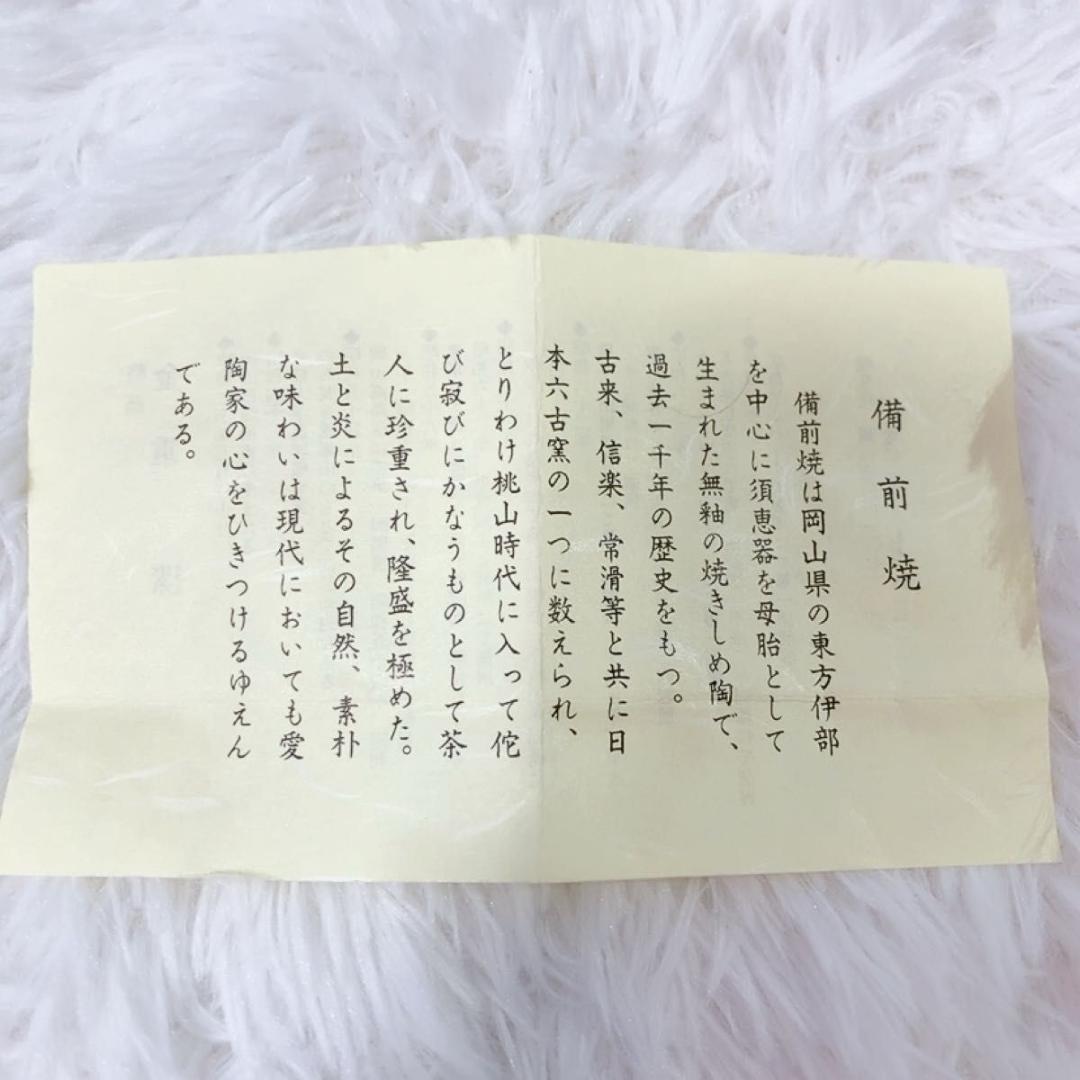 備前焼
備前焼は岡山県の東方伊部
を中心に須恵器を母胎として
生まれた無釉の焼きしめ陶で、
過去一千年の歴史をもつ。
古来、信楽、常滑等と共に日
本六古窯の一つに数えられ、
とりわけ桃山時代に入って侘
び寂びにかなうものとして茶
人に珍重され、隆盛を極めた。
土と炎によるその自然、素朴
な味わいは現代においても愛
陶家の心をひきつけるゆえん
である。